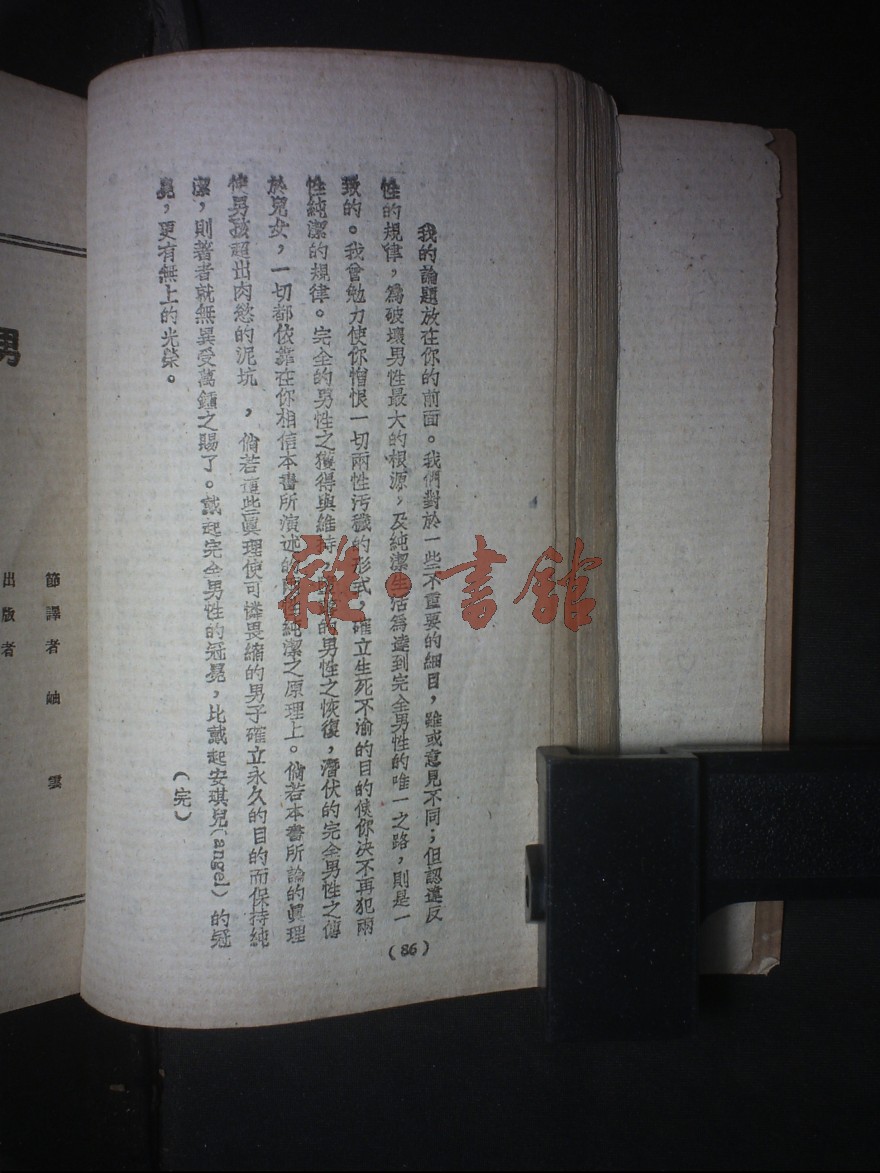 我的論題放在你的前面。我們對於一些不重要的細目，雖或意見不同；但認違反
性的規律，為破壞男性最大的根源，及純潔生活為達到完全男性的唯一之路，則是一
致的。我曾勉力使你憎恨一切兩性汚穢的形式，確立生死不渝的目的使你決不再犯兩
性純潔的規律。完全的男性之獲得與維持，的男性之恢復，潛伏的完全男性之傳
於兒女，一切都依靠在你相信本書所演述的兩性純潔之原理上。倘若本書所論的眞理
使男孩超出肉慾的泥坑，倘若這些眞理使可憐畏縮的男子確立永久的目的而保持純
潔，則著者就無異受萬鍾之賜了。戴起完全男性的冠冕，比戴起安琪兒（angel）的冠
冕，更有無上的光榮。
（完）
(86)
雜·書館
男
節譯者 岫雲
出版者